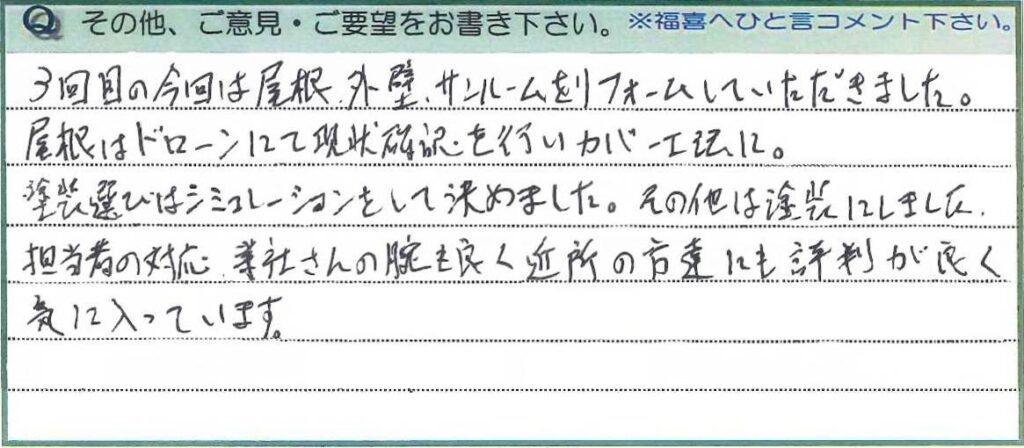 Q その他、ご意見・ご要望をお書き下さい。 ※福喜へひと言コメント下さい。
3回目の今回は屋根、外壁、サンルームをリフォームしていただきました。
屋根はドローンにて現状確認を行いカバー工法に。
塗装選びはシミュレーションをして決めました。その他は塗装にしました。
担当者の対応、業社さんの腕も良く近所の方達にも評判が良く
気に入っています。